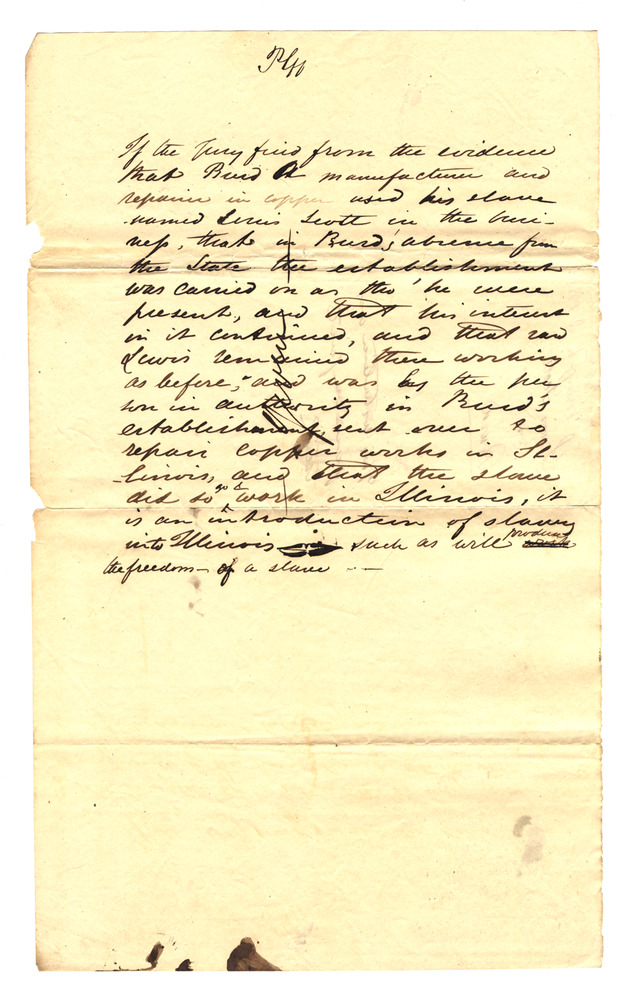 Plff
If the Jury find from the evidence
that Burd a manufacturer and
repairer in copper used his slave
named Lewis Scott in the busi-
ness, that in Burd's absence from
the State the establishment
was carried on as tho' he were
present, and that his interest
in it continued, and that said
Lewis remained there working
as before, and was by the per
son in authority in Burd's
establishment, sent over to
repair copper works in Il-
linois, and that the slave
did so go & work in Illinois, it
is an introduction of slavery
into Illinois such as will produce
the freedom of a slave —